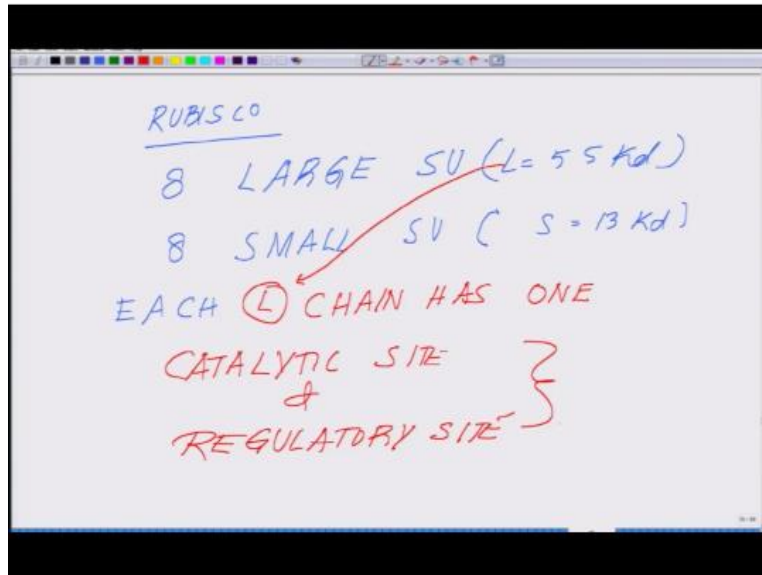 RUBISCO
8 LARGE SU (L = 55 Kd)
8 SMALL SU ( S = 13 Kd)
EACH L CHAIN HAS ONE
CATALYTIC SITE
&
REGULATORY SITE